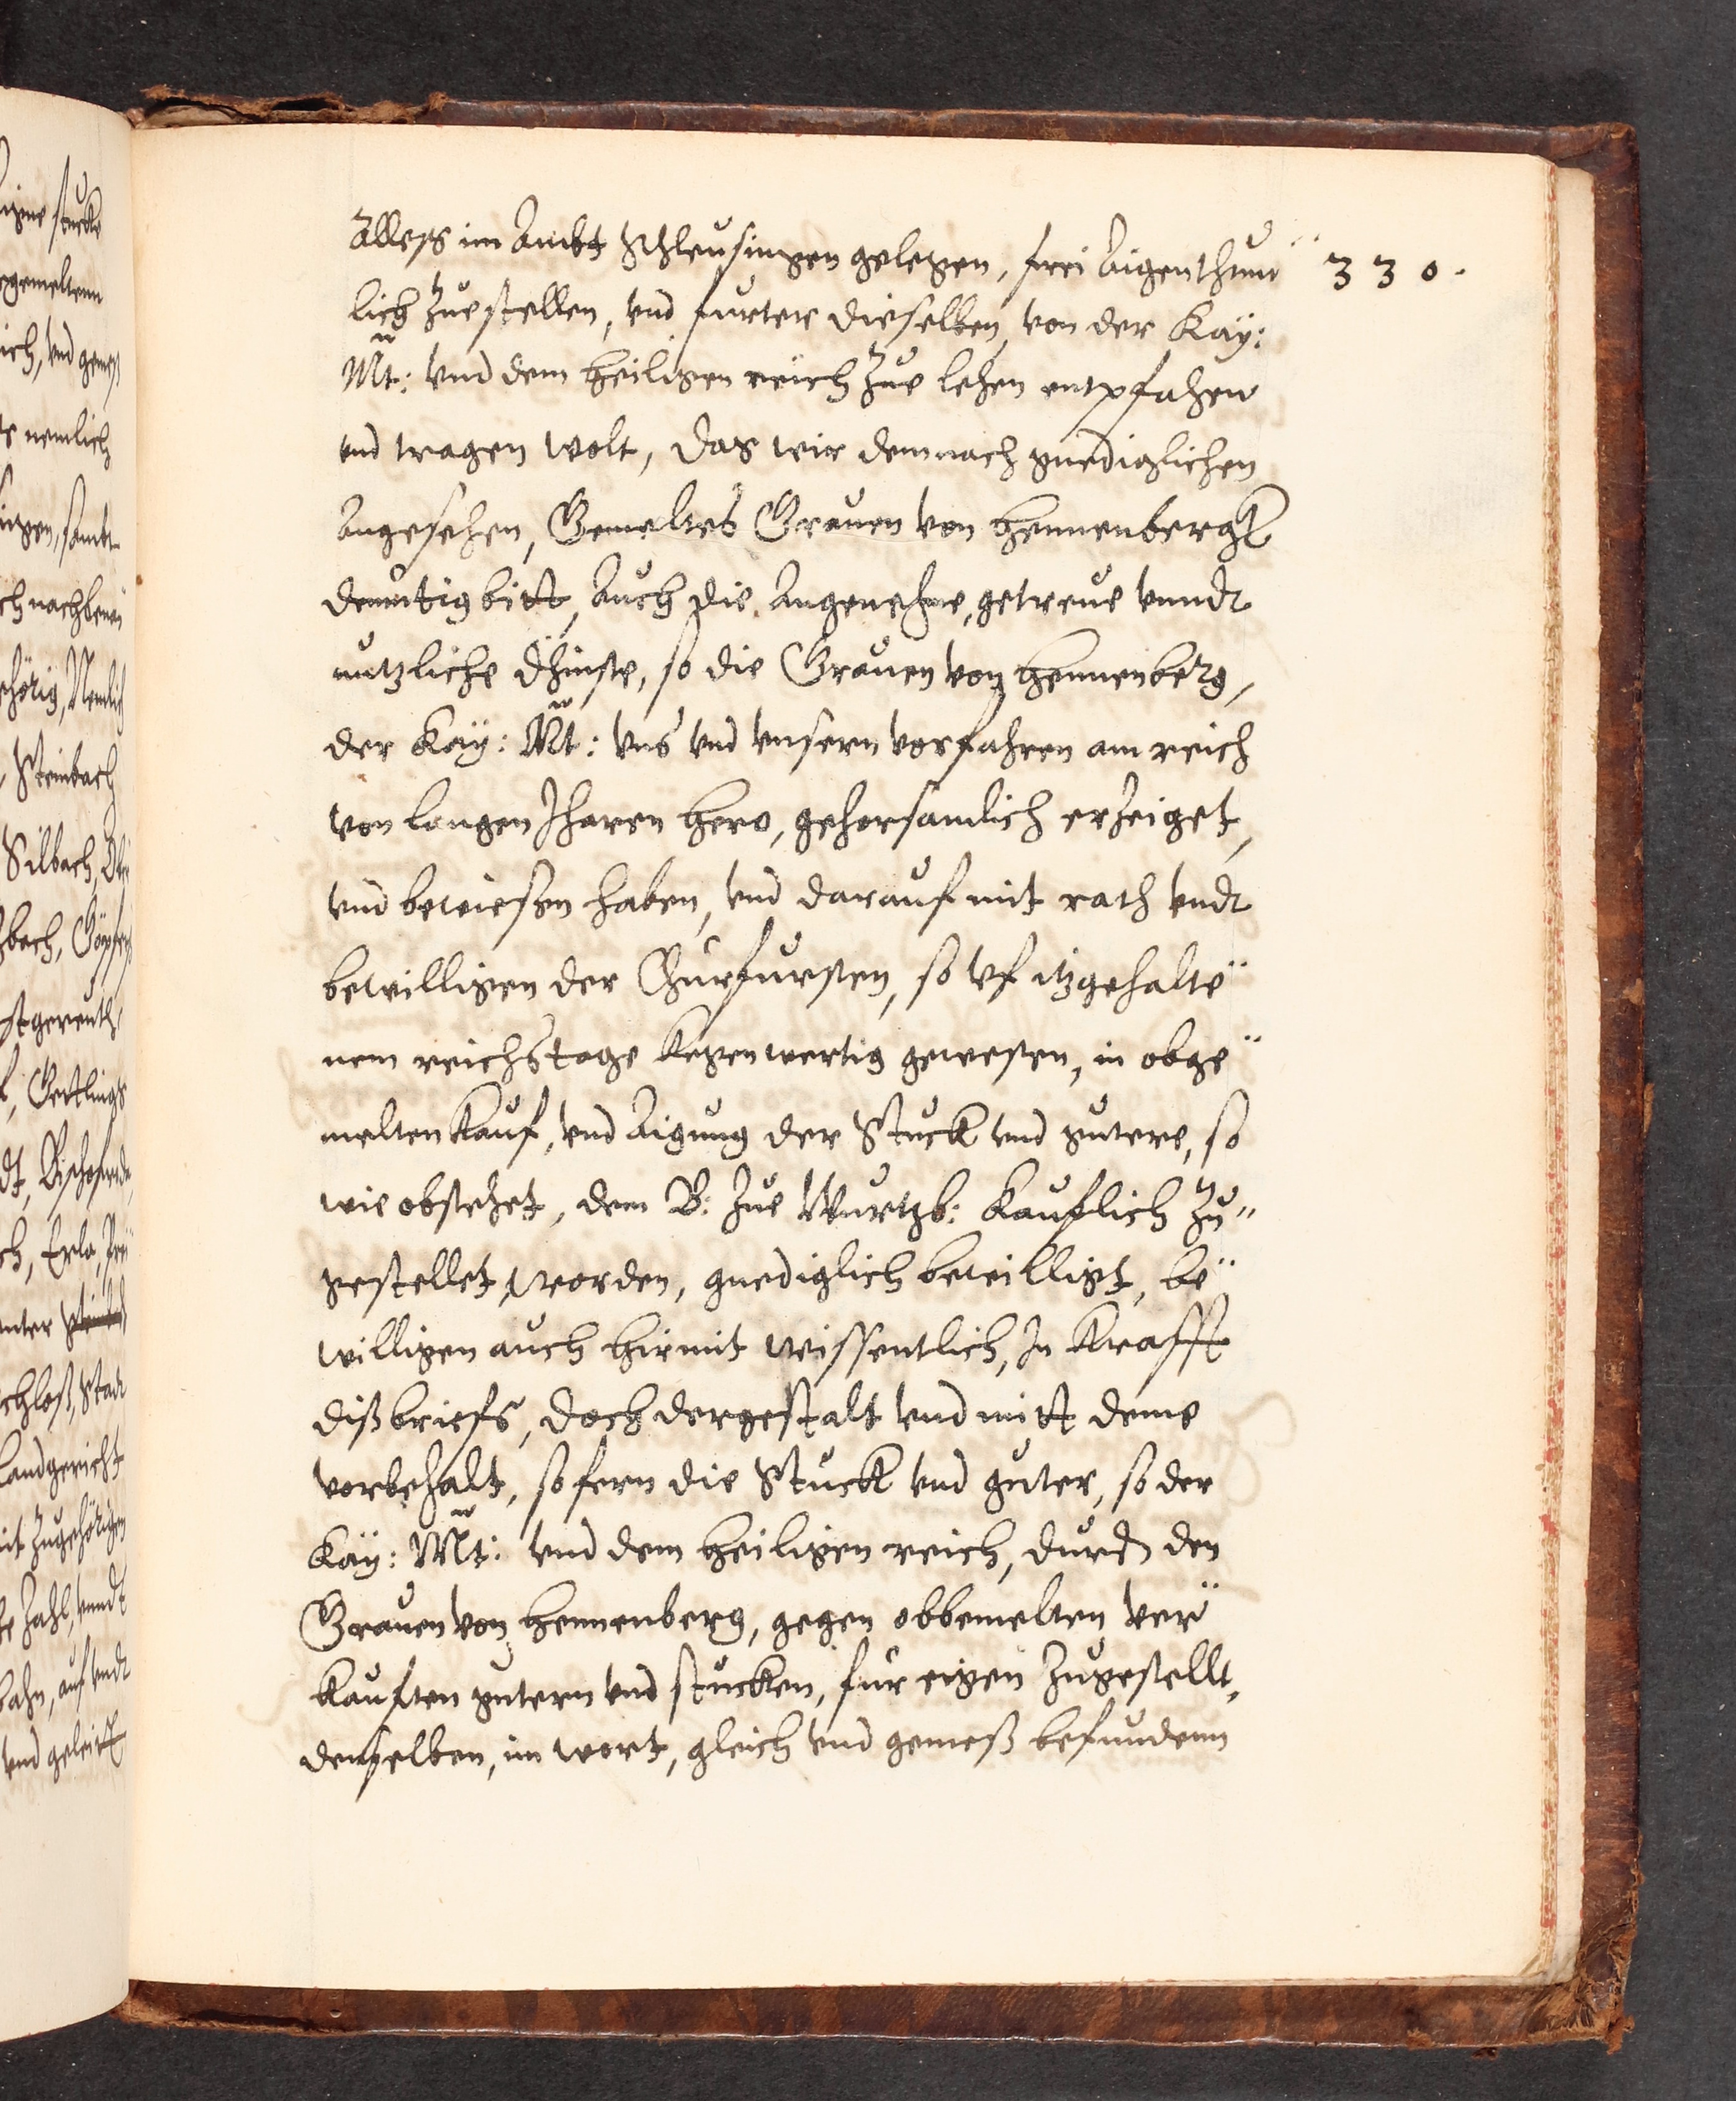 Alless im Ambt Schleusingen gelegen, frei Aigenthum¨ 330.
lich Zue stellen, vnd furter dieselben, von der Kaÿ:
Mt: vnd dem heiligen reich Zue lehen entpfahen
vnd tragen wolt, das wir demnach gnediglichen
Angesehen, Gemeltes Grauen von Hennenbergk
demutig bitt, Auch die Angeneme, getreue vnndt
nutzliche dhinste, so die Grauen von Hennenberg,
der Kaÿ: Mt: vns vnd vnsern vorfahren am reich
von langen Jharen hero, gehorsamlich erzeiget,
vnd bewiesen haben, vnd darauf mit rath vndt
bewilligen der Churfursten, so vf itzgehalte¨
nem reichstage kegenwertig gewesen, in obge¨
melten Kauf, vnd Aigung der Stuck vnd gutere, so
wie obstehet, dem B: Zue Wurtzb: Kauflich Zu¨
gestellet worden, gnediglich bewilligt, be¨
willigen auch hirmit wissentlich, In Krafft
diß briefs, doch dergestalt vnd mitt deme
vorbehalt, so fern die Stuck vnd guter, so der
Kaÿ: Mt: vnd dem heiligen reich, durch den
Grauen von Hennenberg, gegen obbemelten ver¨
kauften gutern vnd stucken, fur eigen Zugestellt,
denselben, im wert, gleich vnd gemeß befundenn